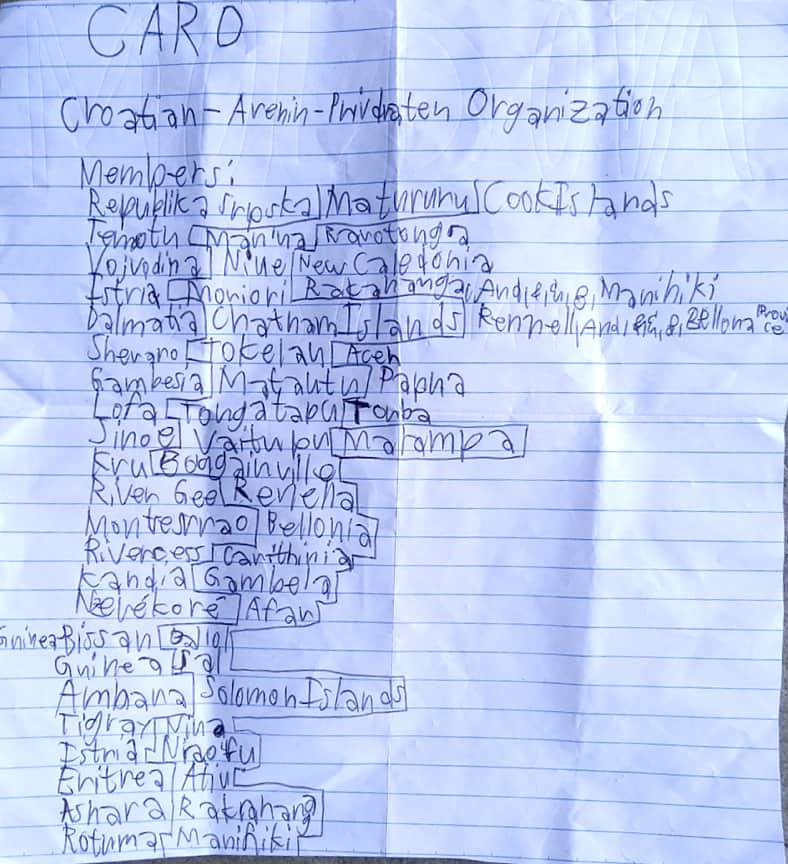 CARO
Croatian-Arenin-Prividraten Organization
Members:
Republika Sripska Maturunu Cook Islands
Temotu Manina Ravotonga
Vojvodina Niue New Caledonia
Istria Moriori Rakahanga, And, Manihiki
Dalmatia Chatham Islands Rennell, And, Bellona Provice
Tokelau Aceh
Gambesia Matautu Papua
Lofa Tongatapu Tonba
Sinoe Vaitupu Malampa
Kru Bougainville
River Gee Renella
Montesrrao Bellonia
Rivercess Carithinia
Kandia Gambela
Nzérékoré Afar
Guinea Bissau
Guinea
Ambana Solomon Islands
Tigray
Istria
Eritrea Atiu
Ashara Rakiahang
Rotuma Manihiki